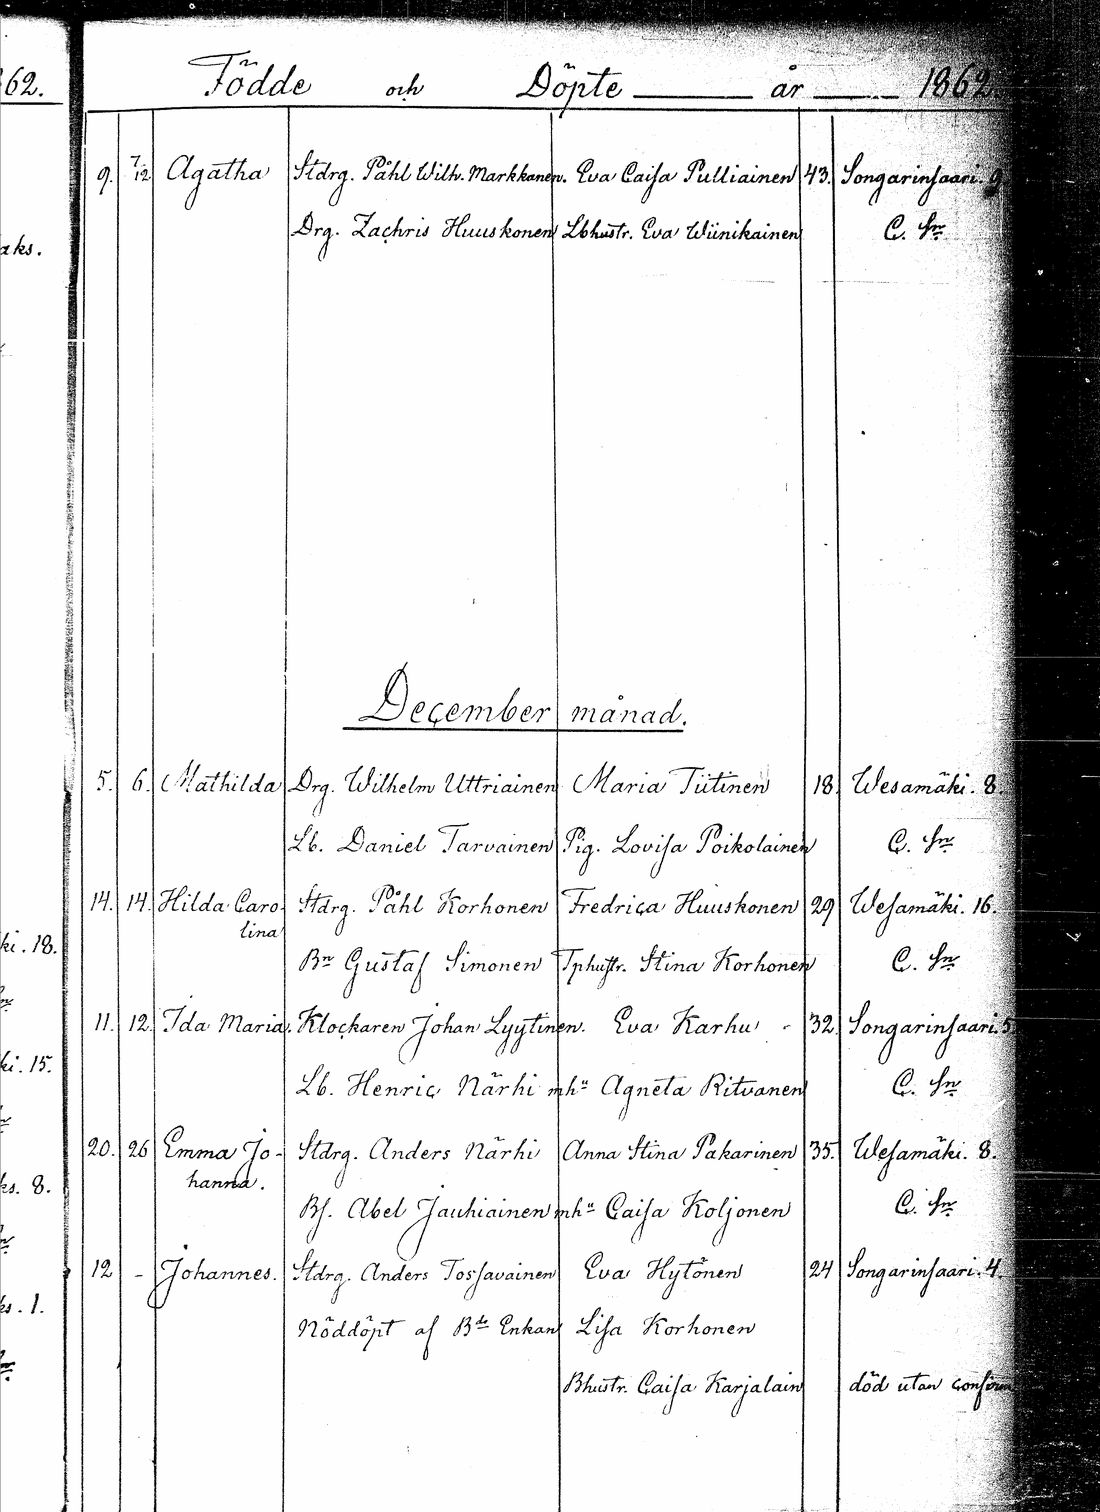 62.
Födde och Döpte år 1862.
9. 7/12 Agatha Stdrg. Påhl Wilh. Markkanen. Eva Caisa Pulliainen 43. Songarinsaari. 9
Drg. Zachris Huuskonen Lbhustr. Eva Wiinikainen C. Sn
aks.
December månad.
5. 6. Mathilda Drg. Wilhelm Uttriainen Maria Tiitinen 18. Wesamäki. 8.
Lb. Daniel Tarvainen Pig. Lovisa Poikolainen C. Sn
14. 14. Hilda Caro- Stdrg. Påhl Korhonen Fredrica Huuskonen 29 Wesamäki. 16.
lina
ki. 18.
Bn Gustaf Simonen Tphustr. Stina Korhonen C. Sn
11. 12. Ida Maria. Klockaren Johan Lyytinen. Eva Karhu - 32. Songarinsaari. 5
ki. 15.
Lb. Henric Närhi mhu Agneta Ritvanen C. Sn
20. 26 Emma Jo- Stdrg. Anders Närhi Anna Stina Pakarinen 35. Wesamäki. 8.
hanna.
ks. 8.
Bs. Abel Jauhiainen mhu Caisa Koljonen C. Sn
12 - Johannes. Stdrg. Anders Tossavainen Eva Hytönen 24 Songarinsaari. 4.
ks. 1.
Nöddöpt af Bde Enkan Lisa Korhonen
Bhustr. Caisa Karjalain död utan confirm